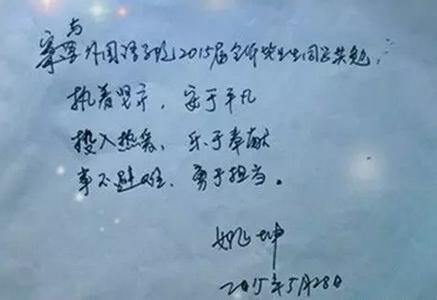 与外国语学院2015届全体毕业生同学共勉:
执着坚守,安于平凡
投入热爱、乐于奉献
事不避难、勇于担当。
姚坤
2015年5月28日